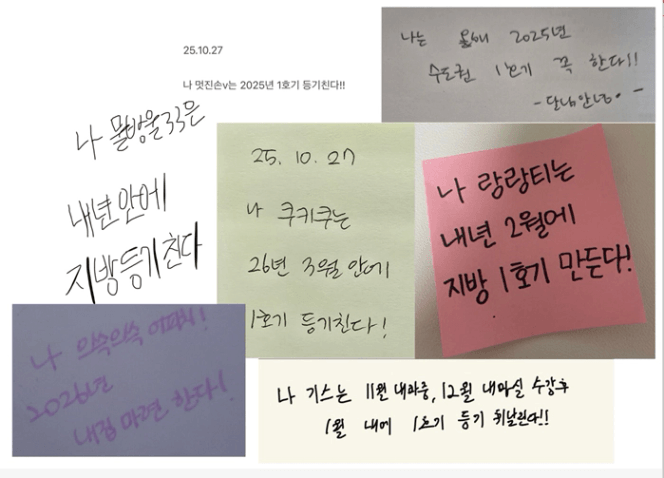 25.10.27
나 멋진손v는 2025년 1호기 등기친다!!
나는 올해 2025년
수도권 1호기 꼭 한다!!
- 단님안녕. -
나 물방울33은
내년 안에
지방등기 친다
25. 10. 27
나 쿠키쿠는
26년 3월 안에
1호기 등기친다!
나 랑랑티는
내년 2월에
지방 1호기 만든다!
나 의쓱의쓱
2026년
내집 마련 한다!
나 기스는 11월 내마중, 12월 내마실 수강후
1월 내에 1호기 등기 휘날린다!!